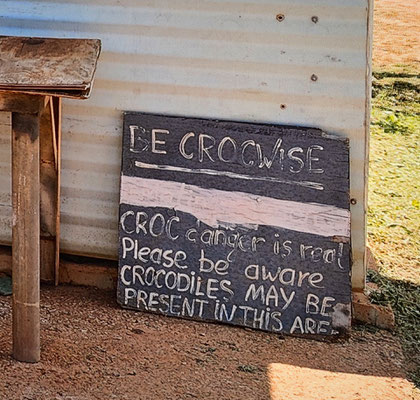 BE CROCWISE
CROC danger is real
Please be aware
CROCODILES MAY BE
PRESENT IN THIS ARE